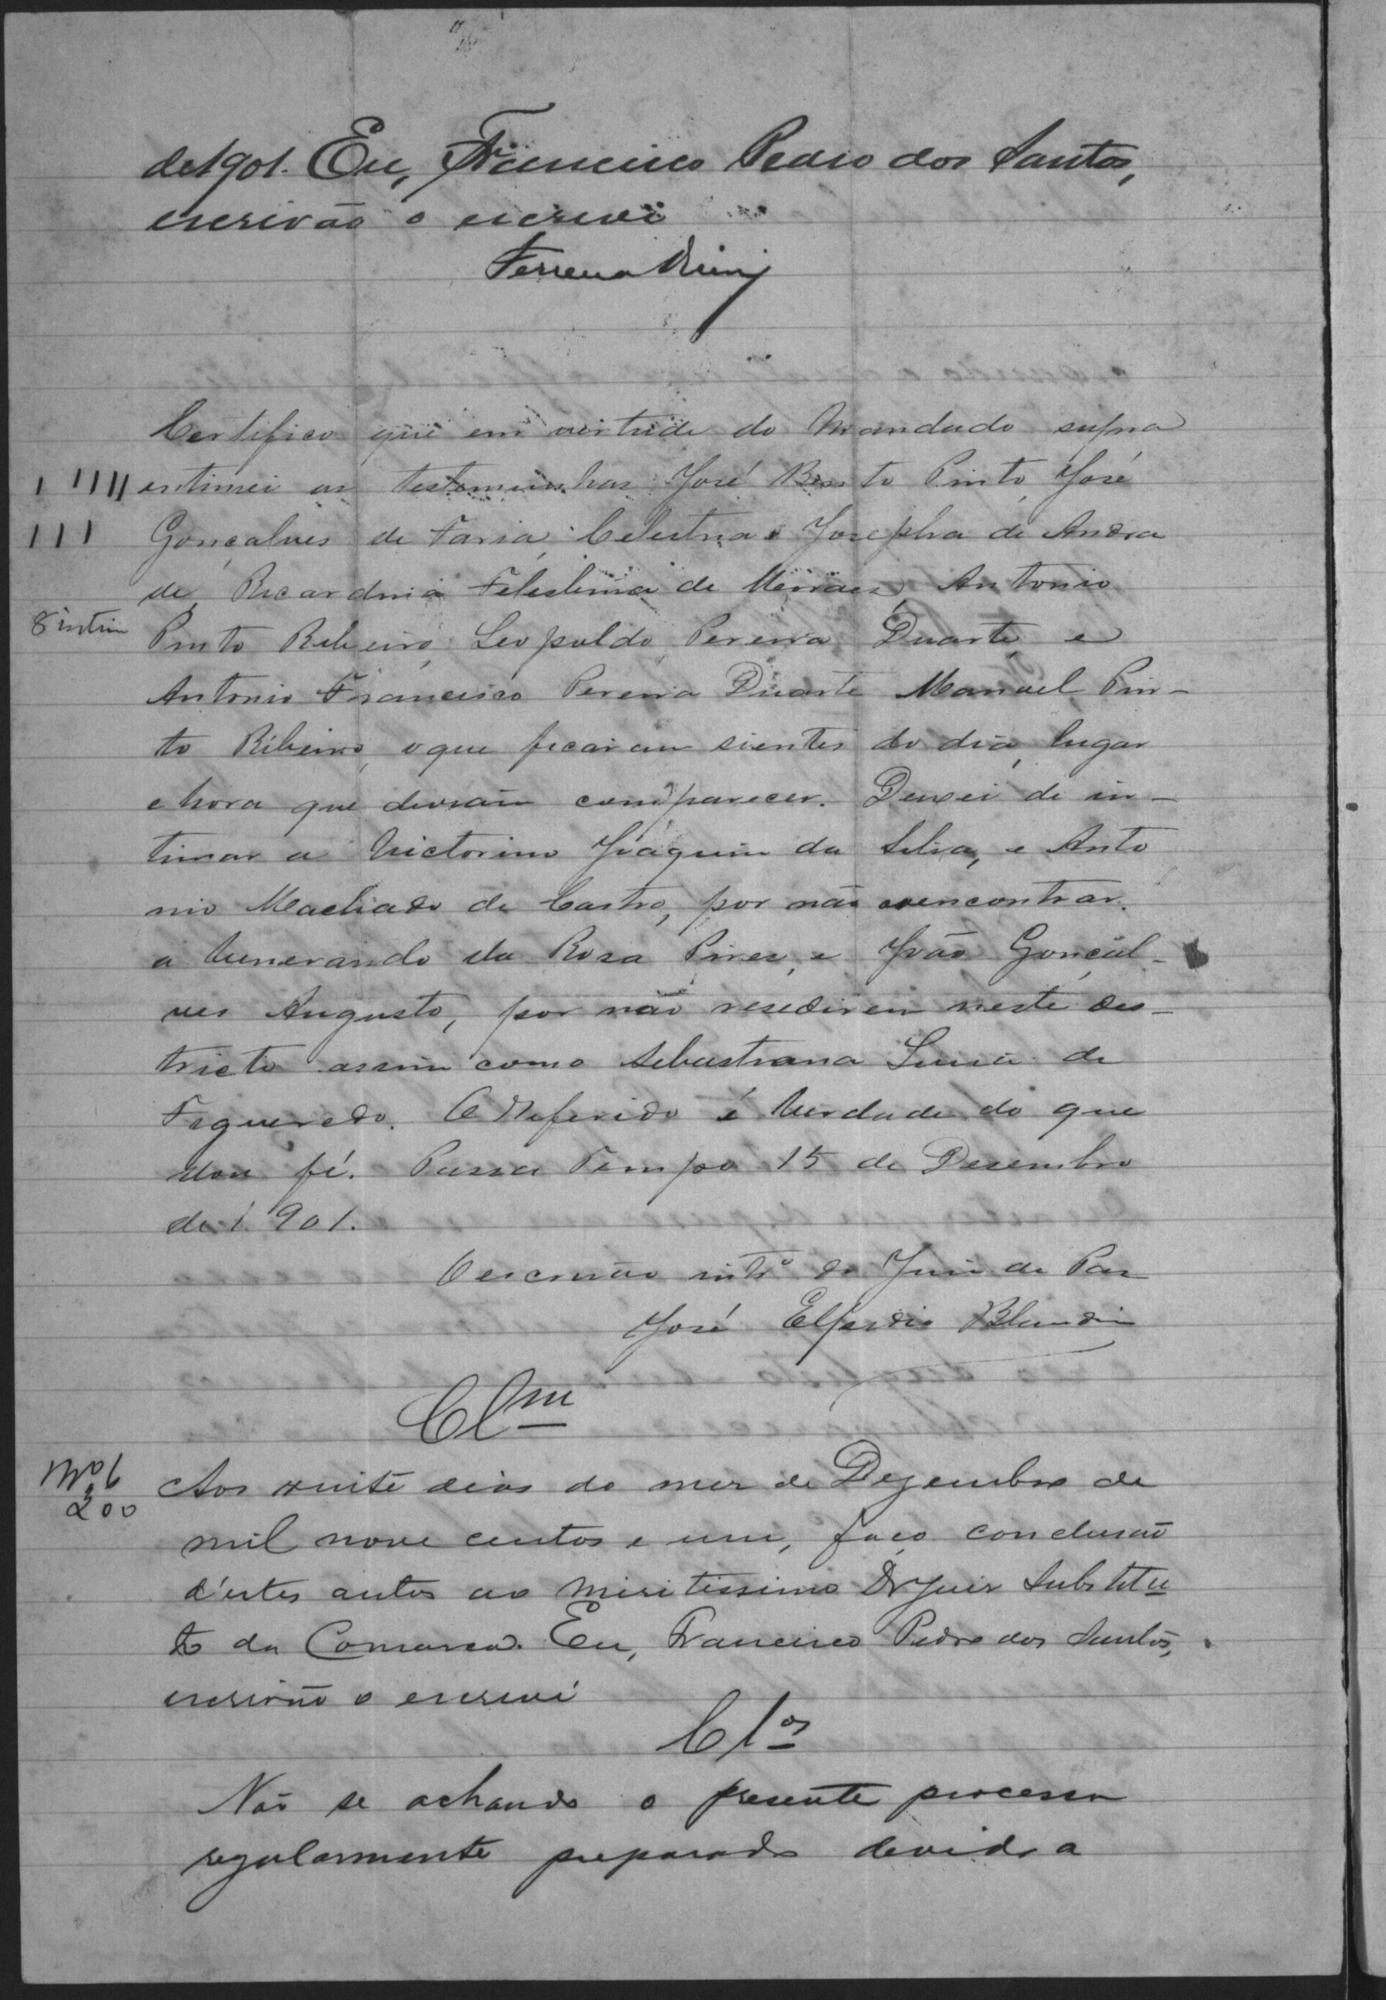 de 1901. Eu, Francisco Pedro dos Santos,
escrivão o escrevi
Ferreira
Certifico que em virtude do Mandado supra
1 1111 intimei as testemunhas José Bento Pinto, José
111 Gonçalves de Faria, Celestina Josepha de Andra
de, Ricardina Felesbina de Moraes, Antonio
8 intim Pinto Ribeiro, Leopoldo Pereira Duarte, e
Antonio Francisco Pereira Duarte Manoel Pin-
to Ribeiro, o que ficaram sientes do dia, lugar
e hora que deverão comparecer. Deixei de in-
timar a Victorino Joaquim da Silva, e Anto
nio Machado de Castro, por não encontrar.
a Venerando da Rosa Pires, e João Gonçal-
ves Augusto, por não residirem neste des-
tricto assim como Sebastiana Luisa de
Figueredo. O Referido é Verdade do que
dou fé. Passa Tempo 15 de Desembro
de 1901.
O escrivão intº do Juiz de Paz
José Elpidio Blandin
Clm
200 Aos vinte dias do mez de Dezembro de
mil nove centos e um, faço conclusão
d'estes autos ao meritissimo Dr Juiz Substitu
to da Comarca. Eu, Francisco Pedro dos Santos,
escrivão o escrevi
Clos
Não se achando o presente processo
regularmente preparado devido a